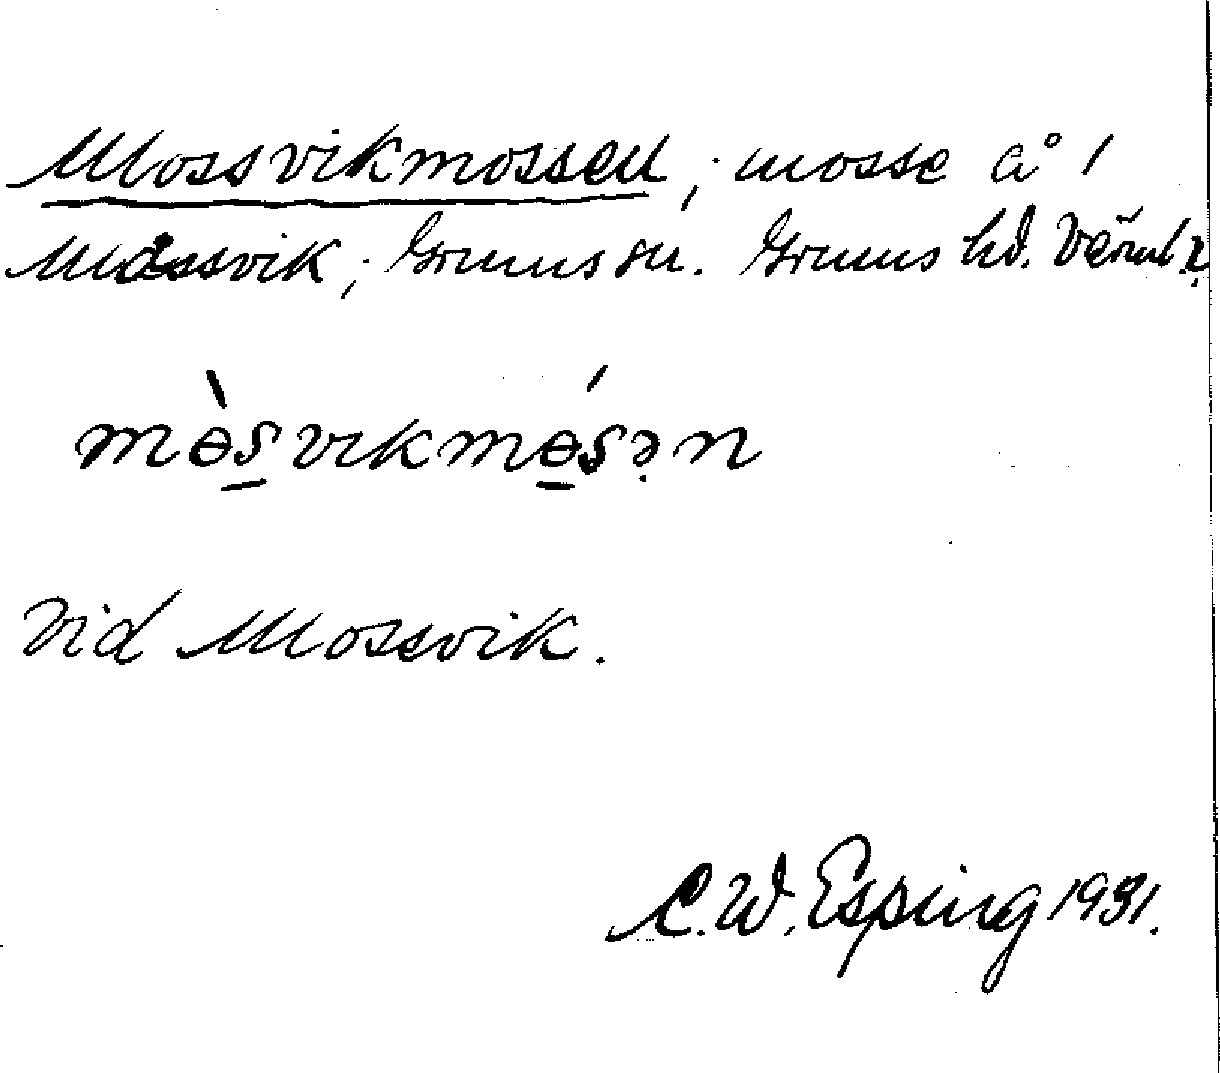 Mossvikmossen; mosse å 1
Mossvik; Grums sn. Grums hd. Värml.
mɵ̀s̱vikmɵ̱́sən
Vid Mossvik.
C. W. Esping 1931.